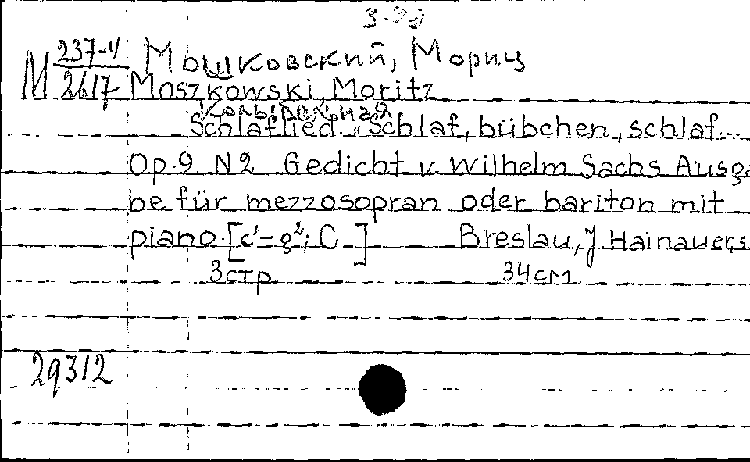 M 237-4/2617
Мошковский, Мориц
Moszkowski Moritz
Колыбельная
Schlaflied "Schlaf, bübchen, schlaf...
Op.9 N2 Gedicht v. Wilhelm Sachs Ausga
be für mezzosopran oder bariton mit
piano.[c'-g²; C ] Breslau, J. Hainauers
3стр 34см
29312